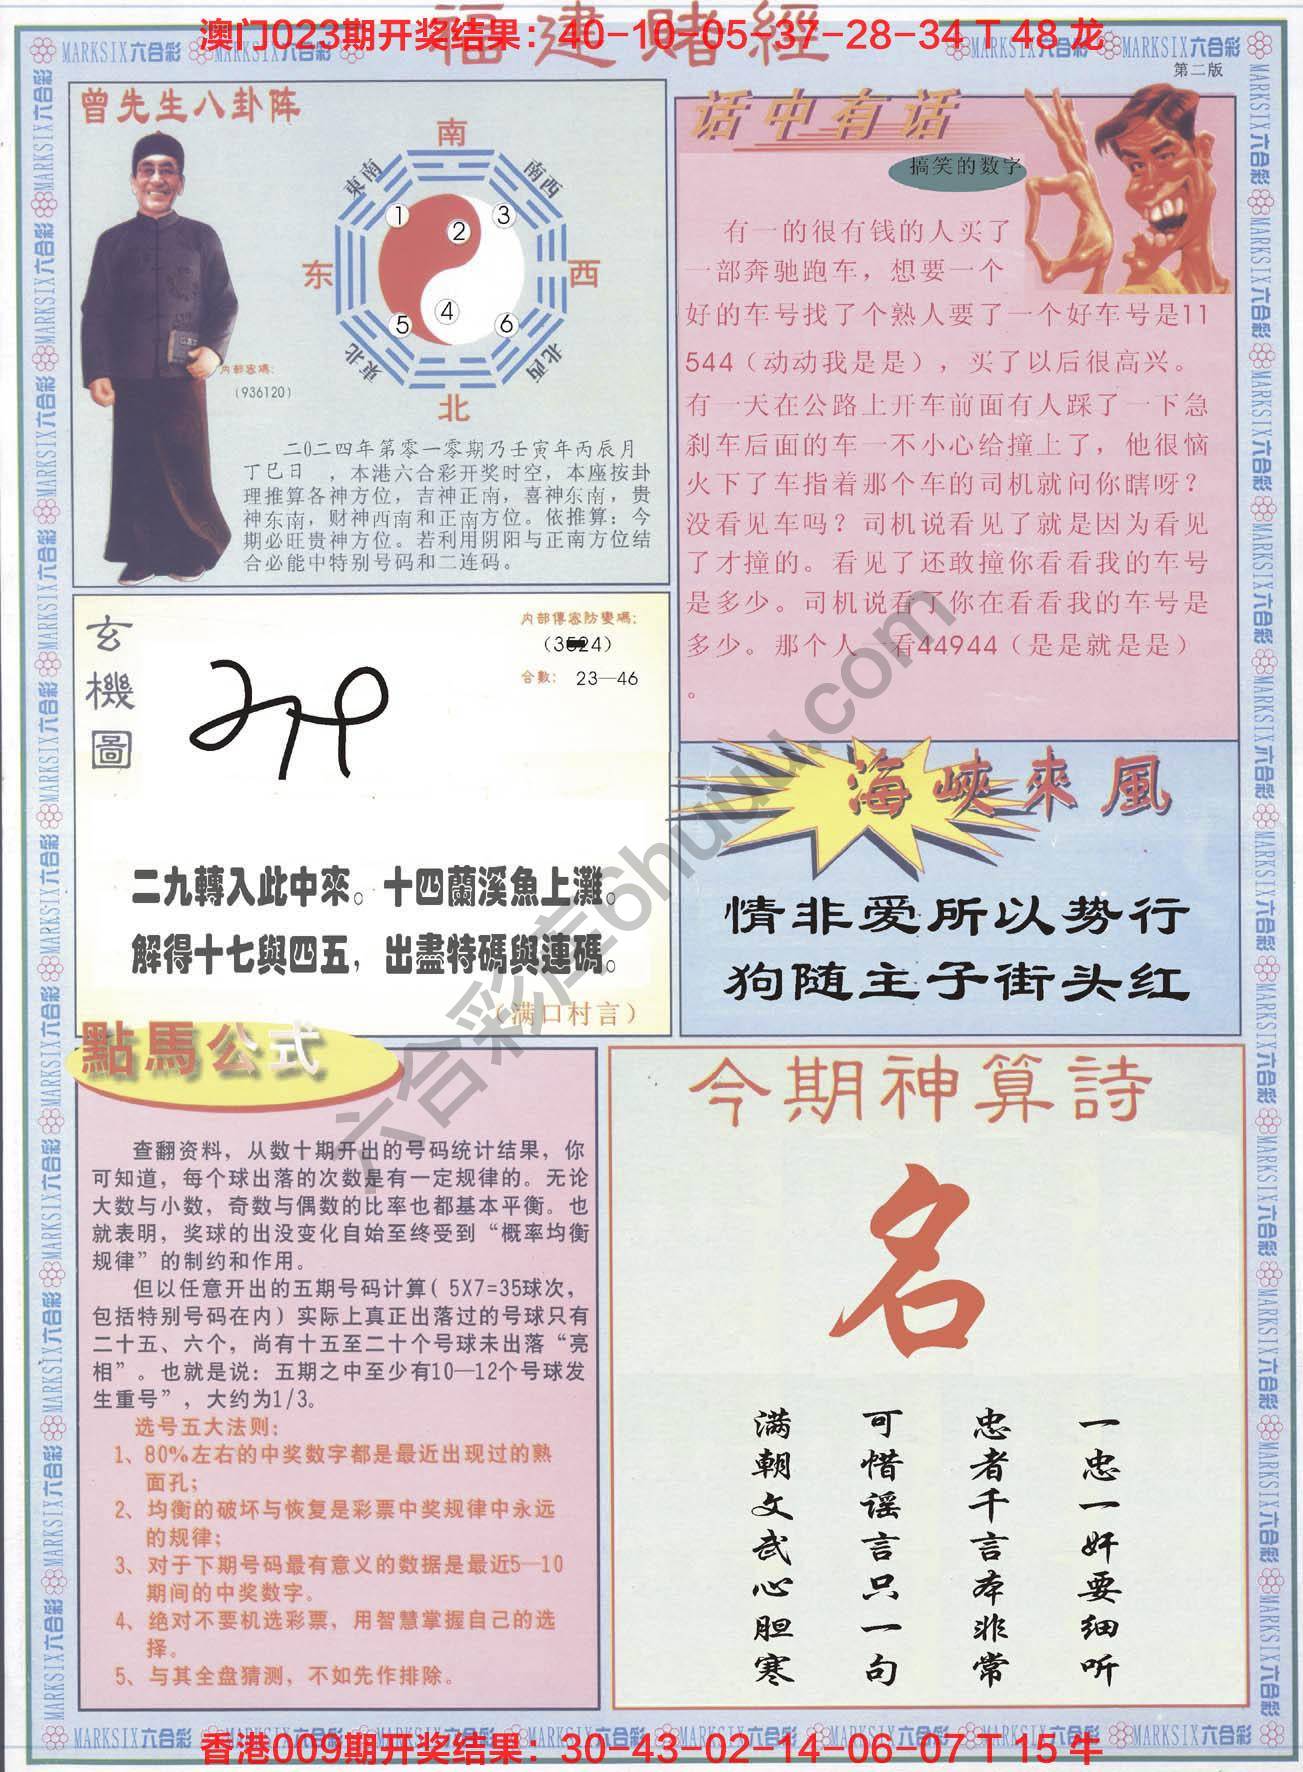 福建賭經
澳门023期开奖结果：40-10-05-37-28-34 T 48 龙
MARKSIX六合彩
第二版
曾先生八卦阵
南
東南
南西
1
2
3
东
西
4
5
6
東北
北西
北
内部密碼：
（936120）
二0二四年第零一零期乃壬寅年丙辰月
丁巳日 ，本港六合彩开奖时空，本座按卦
理推算各神方位，吉神正南，喜神东南，贵
神东南，财神西南和正南方位。依推算：今
期必旺贵神方位。若利用阴阳与正南方位结
合必能中特别号码和二连码。
话中有话
搞笑的数字
有一的很有钱的人买了
一部奔驰跑车，想要一个
好的车号找了个熟人要了一个好车号是11
544（动动我是是），买了以后很高兴。
有一天在公路上开车前面有人踩了一下急
刹车后面的车一不小心给撞上了，他很恼
火下了车指着那个车的司机就问你瞎呀？
没看见车吗？司机说看见了就是因为看见
了才撞的。看见了还敢撞你看看我的车号
是多少。司机说看了你在看看我的车号是
多少。那个人一看44944（是是就是是）
。
玄機圖
内部傳密防變碼：
合數： 23—46
二九轉入此中來。十四蘭溪魚上灘。
解得十七與四五，出盡特碼與連碼。
（满口村言）
海峽來風
情非爱所以势行
狗随主子街头红
六合彩库6huuu.com
點馬公式
查翻资料，从数十期开出的号码统计结果，你
可知道，每个球出落的次数是有一定规律的。无论
大数与小数，奇数与偶数的比率也都基本平衡。也
就表明，奖球的出没变化自始至终受到“概率均衡
规律”的制约和作用。
但以任意开出的五期号码计算（5X7=35球次，
包括特别号码在内）实际上真正出落过的号球只有
二十五、六个，尚有十五至二十个号球未出落“亮
相”。也就是说：五期之中至少有10—12个号球发
生重号”，大约为1/3。
选号五大法则：
1、80%左右的中奖数字都是最近出现过的熟
面孔；
2、均衡的破坏与恢复是彩票中奖规律中永远
的规律；
3、对于下期号码最有意义的数据是最近5—10
期间的中奖数字。
4、绝对不要机选彩票，用智慧掌握自己的选
择。
5、与其全盘猜测，不如先作排除。
今期神算詩
名
一忠一奸要细听
忠者千言本非常
可惜谣言只一句
满朝文武心胆寒
香港009期开奖结果：30-43-02-14-06-07 T 15 牛